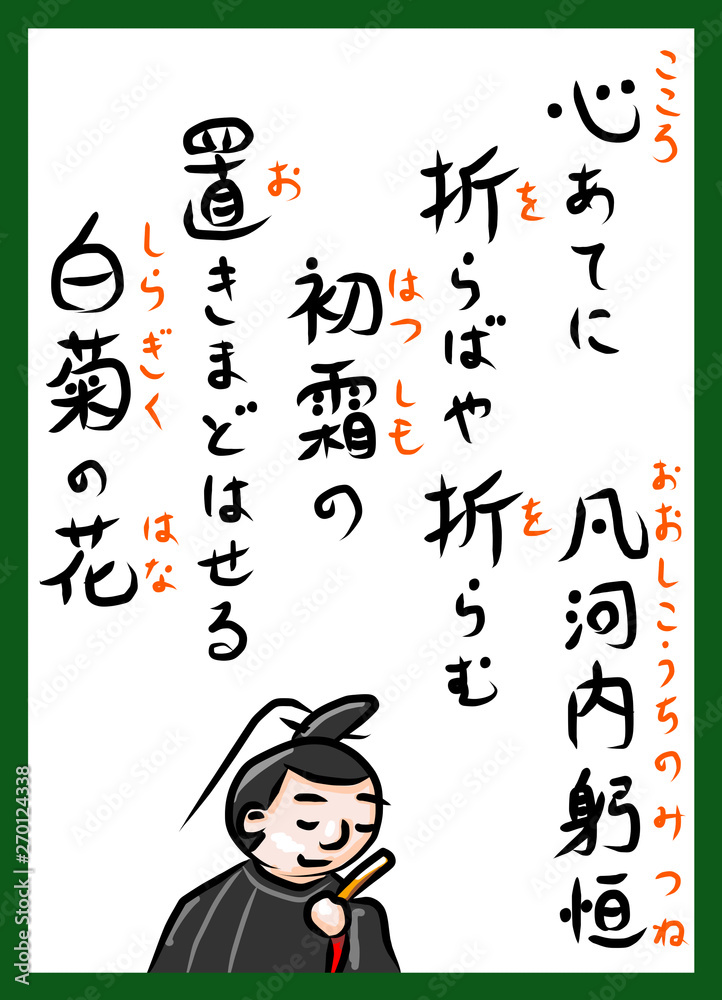 心あてに
凡河内躬恒
折らばや折らむ
初霜の
置きまどはせる
白菊の花
こころ
おおしこうちのみつね
を
を
はつしも
お
しらぎく
はな
Adobe Stock | #270124338